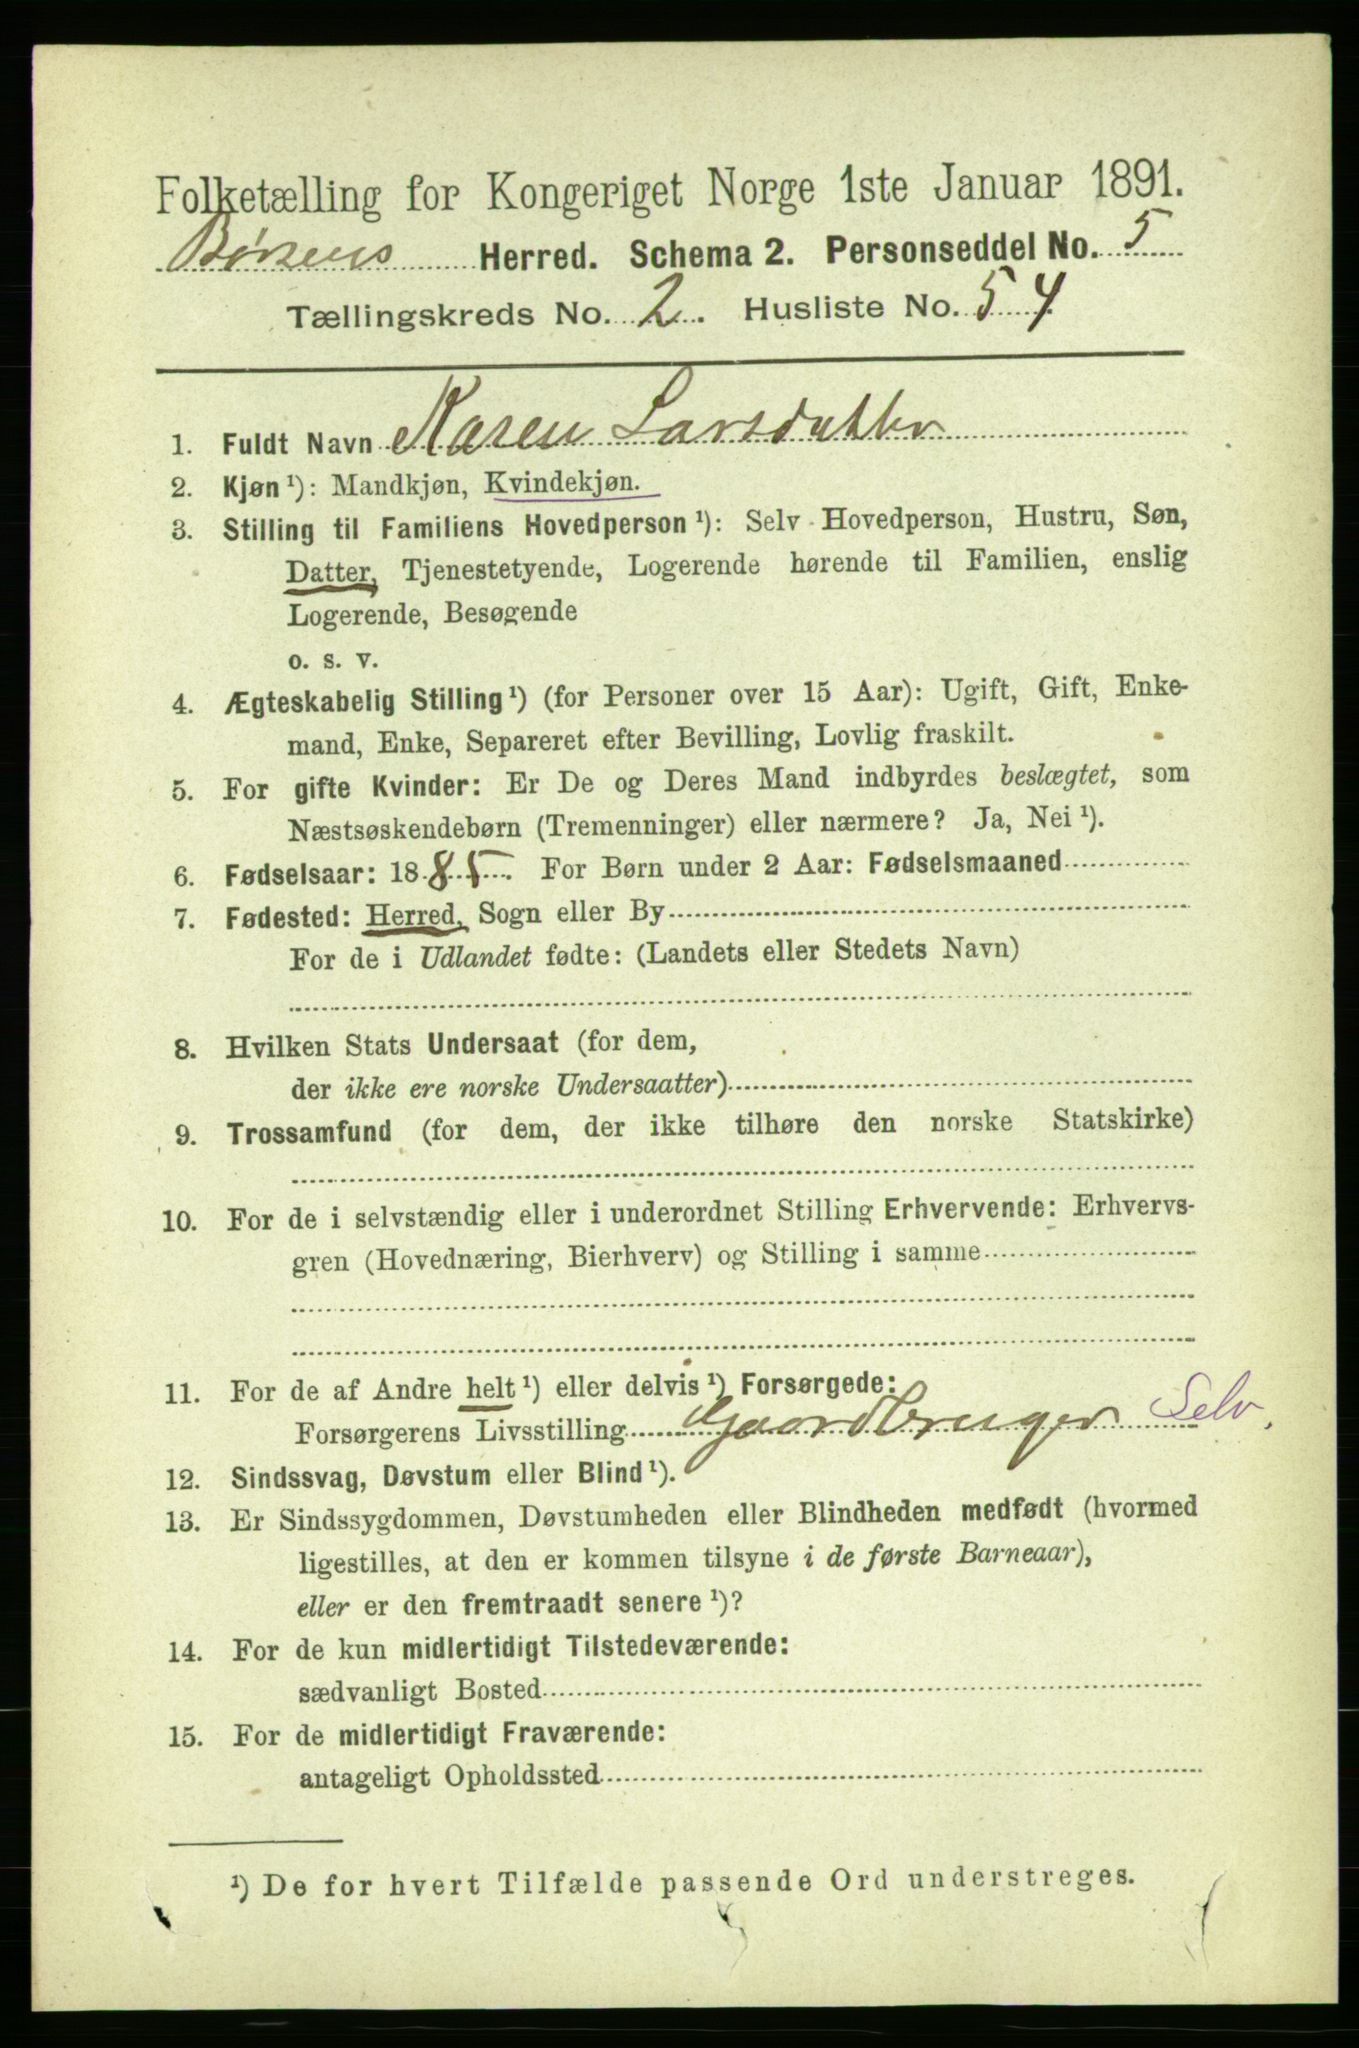 Folketælling for Kongeriget Norge 1ste Januar 1891.
Børsens Herred. Schema 2. Personseddel No. 5
Tællingskreds No. 2. Husliste No. 54
1. Fuldt Navn Karen Larsdatter
2. Kjøn ¹): Mandkjøn, Kvindekjøn.
3. Stilling til Familiens Hovedperson ¹): Selv Hovedperson, Hustru, Søn,
Datter, Tjenestetyende, Logerende hørende til Familien, enslig
Logerende, Besøgende
o. s. v.
4. Ægteskabelig Stilling ¹) (for Personer over 15 Aar): Ugift, Gift, Enke-
mand, Enke, Separeret efter Bevilling, Lovlig fraskilt.
5. For gifte Kvinder: Er De og Deres Mand indbyrdes beslægtet, som
Næstsøskendebørn (Tremenninger) eller nærmere? Ja, Nei ¹).
6. Fødselsaar: 1885. For Børn under 2 Aar: Fødselsmaaned
7. Fødested: Herred, Sogn eller By
For de i Udlandet fødte: (Landets eller Stedets Navn)
8. Hvilken Stats Undersaat (for dem,
der ikke ere norske Undersaatter)
9. Trossamfund (for dem, der ikke tilhøre den norske Statskirke)
10. For de i selvstændig eller i underordnet Stilling Erhvervende: Erhvervs-
gren (Hovednæring, Bierhverv) og Stilling i samme
11. For de af Andre helt ¹) eller delvis ¹) Forsørgede:
Forsørgerens Livsstilling Gaardbruger Selv.
12. Sindssvag, Døvstum eller Blind ¹).
13. Er Sindssygdommen, Døvstumheden eller Blindheden medfødt (hvormed
ligestilles, at den er kommen tilsyne i de første Barneaar),
eller er den fremtraadt senere ¹)?
14. For de kun midlertidigt Tilstedeværende:
sædvanligt Bosted
15. For de midlertidigt Fraværende:
antageligt Opholdssted
¹) De for hvert Tilfælde passende Ord understreges.